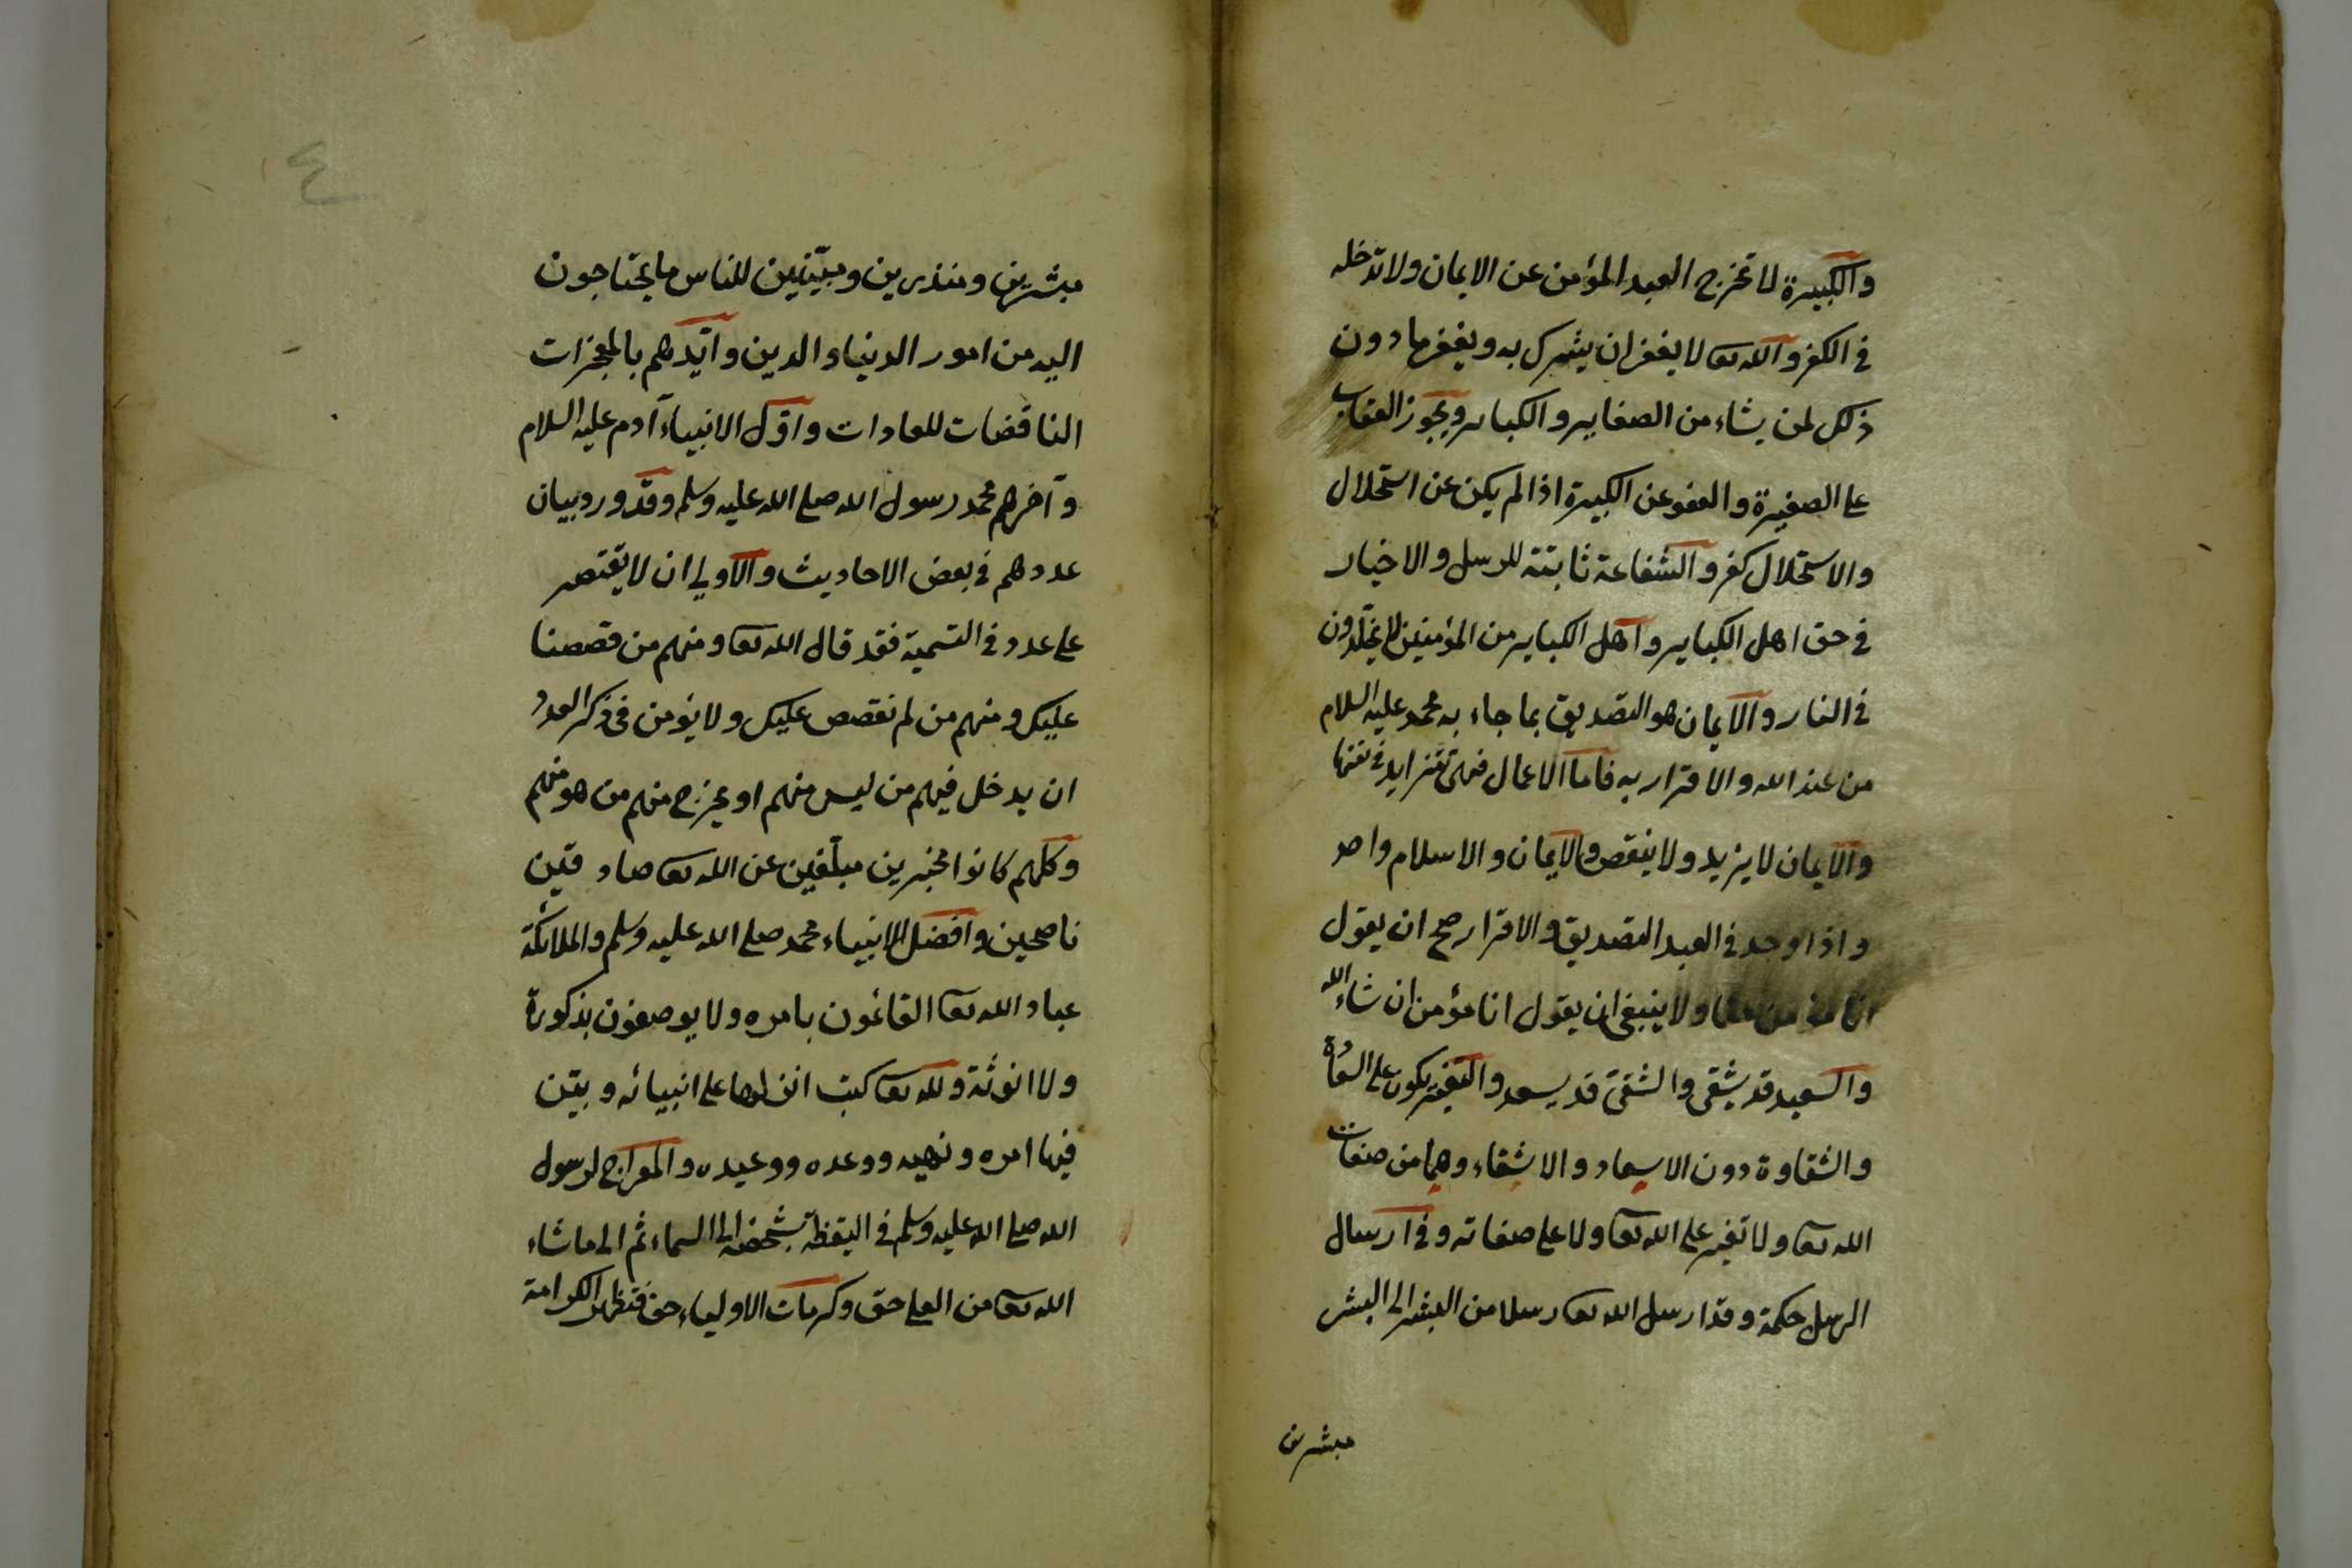 والكبيرة لا تخرج العبد المؤمن عن الايمان ولا تدخله
في الكفر والله تعا لا يغفر ان يشرك به ويغفر ما دون
ذلك لمن يشاء من الصغاير والكباير ويجوز العقاب
على الصغيرة والعفو عن الكبيرة اذا لم يكن عن استحلال
والاستحلال كفر والشفاعة ثابتة للرسل والاخيار
في حق اهل الكباير واهل الكباير من المؤمنين لا يخلدون
في النار والايمان هو التصديق بما جاء به محمد عليه السلام
من عند الله والاقرار به فاما الاعمال فهى تتزايد في نفسها
والايمان لا يزيد ولا ينقص والايمان والاسلام واحد
واذا وجد في العبد التصديق والاقرار صح ان يقول
انا مؤمن حقا ولا ينبغي ان يقول انا مؤمن ان شاء الله
والسعيد قد يشقى والشقىّ قد يسعد والتغيّر يكون على السعادة
والشقاوة دون الاسعاد والاشقاء وهما من صفات
الله تعا ولا تغير على الله تعا ولا على صفاته وفي ارسال
الرسل حكمة وقد ارسل الله تعا رسلا من البشر الى البشر
مبشرين
٤
مبشرين ومنذرين ومبيّنين للناس ما يحتاجون
اليه من امور الدنياء والدين وايّدهم بالمعجزات
الناقضات للعادات واوّل الانبياء آدم عليه السلام
وآخرهم محمد رسول الله صلى الله عليه وسلم وقد ورد بيان
عددهم في بعض الاحاديث والاولي ان لا يقتصر
على عدد في التسمية فقد قال الله تعا ومنهم من قصصنا
عليك ومنهم من لم نقصص عليك ولا يؤمن في ذكر العدد
ان يدخل فيهم من ليس منهم او يخرج منهم من هو منهم
وكلّهم كانوا مخبرين مبلّغين عن الله تعا صادقين
ناصحين وافضل الانبياء محمد صلى الله عليه وسلم والملائكة
عباد الله تعا القائمون بامره ولا يوصفون بذكورة
ولا انوثة ولله تعا كتب انزلها على انبيائه وبيّن
فيها امره ونهيه ووعده ووعيده والمعراج لرسول
الله صلى الله عليه وسلم في اليقظة بشخصه الى السماء ثم الى ما شاء
الله تعا من العلى حق وكرمات الاولياء حق فتظهر الكرامة